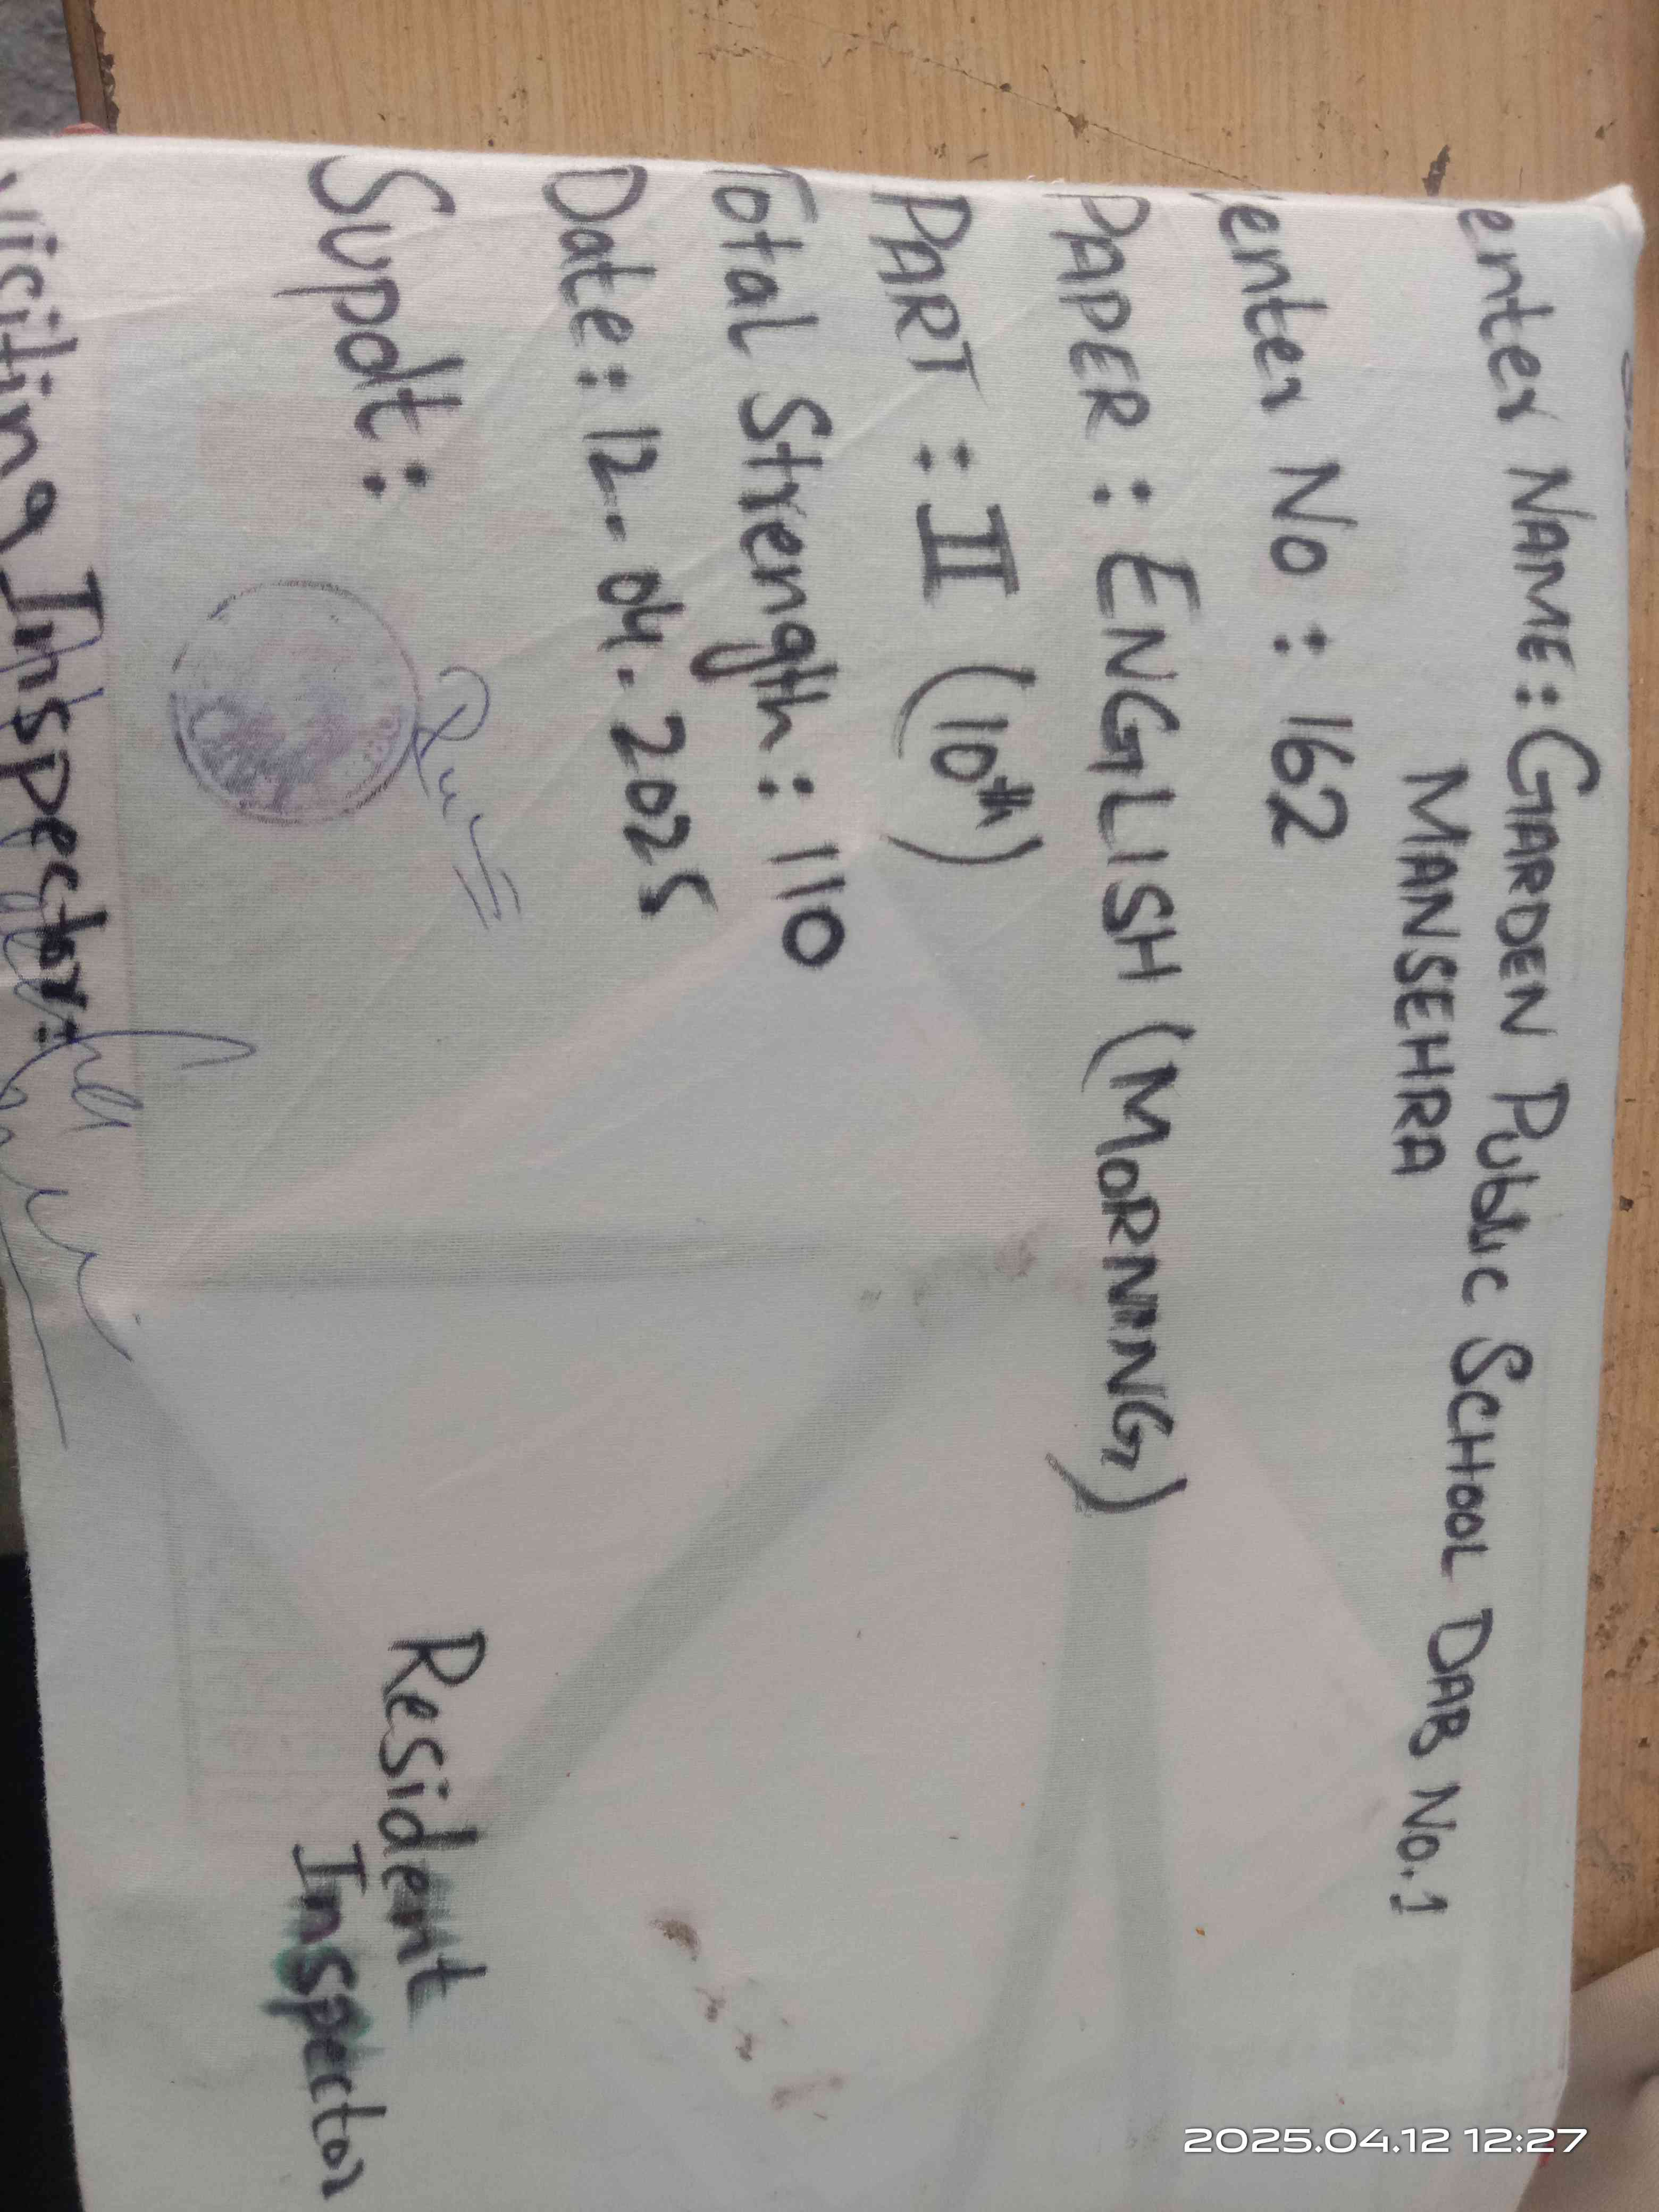 enter NAME: GARDEN PUBLIC SCHOOL DAB No.1
MANSEHRA
enter No : 162
PAPER : ENGLISH (MORNING)
PART : II (10th)
Total Strength : 110
Date : 12-04-2025
Supdt :
Resident
Inspector
Visiting Inspector:
2025.04.12 12:27